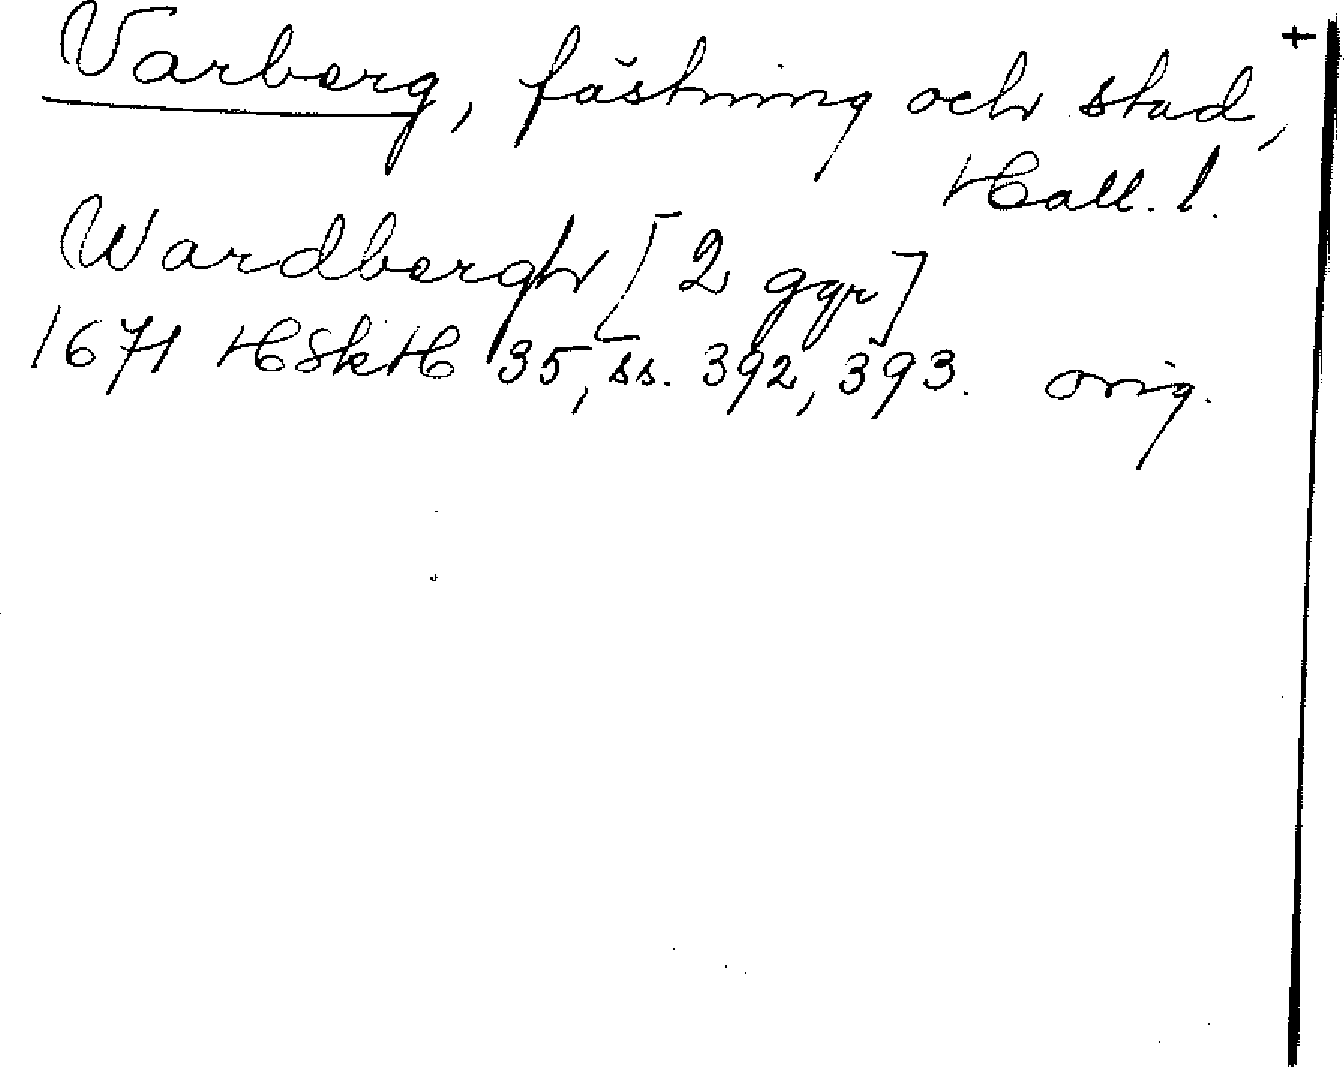 Varberg, fästning och stad, +
Hall. l.
Wardbergh [2 ggr]
1671 HSkH 35, ss. 392, 393. orig.